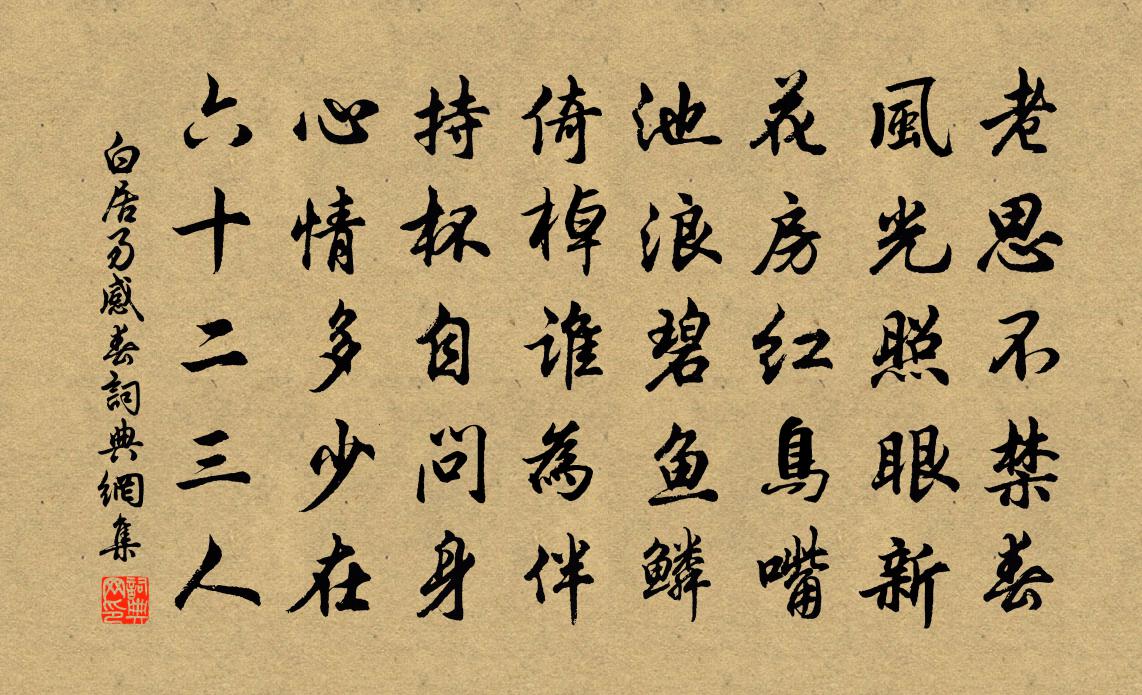 老思不禁春
風光照眼新
花房紅鳥嘴
池浪碧鱼鱗
倚棹誰為伴
持杯自問身
心情多少在
六十二三人
白居易感春詞典網集
詞典网印